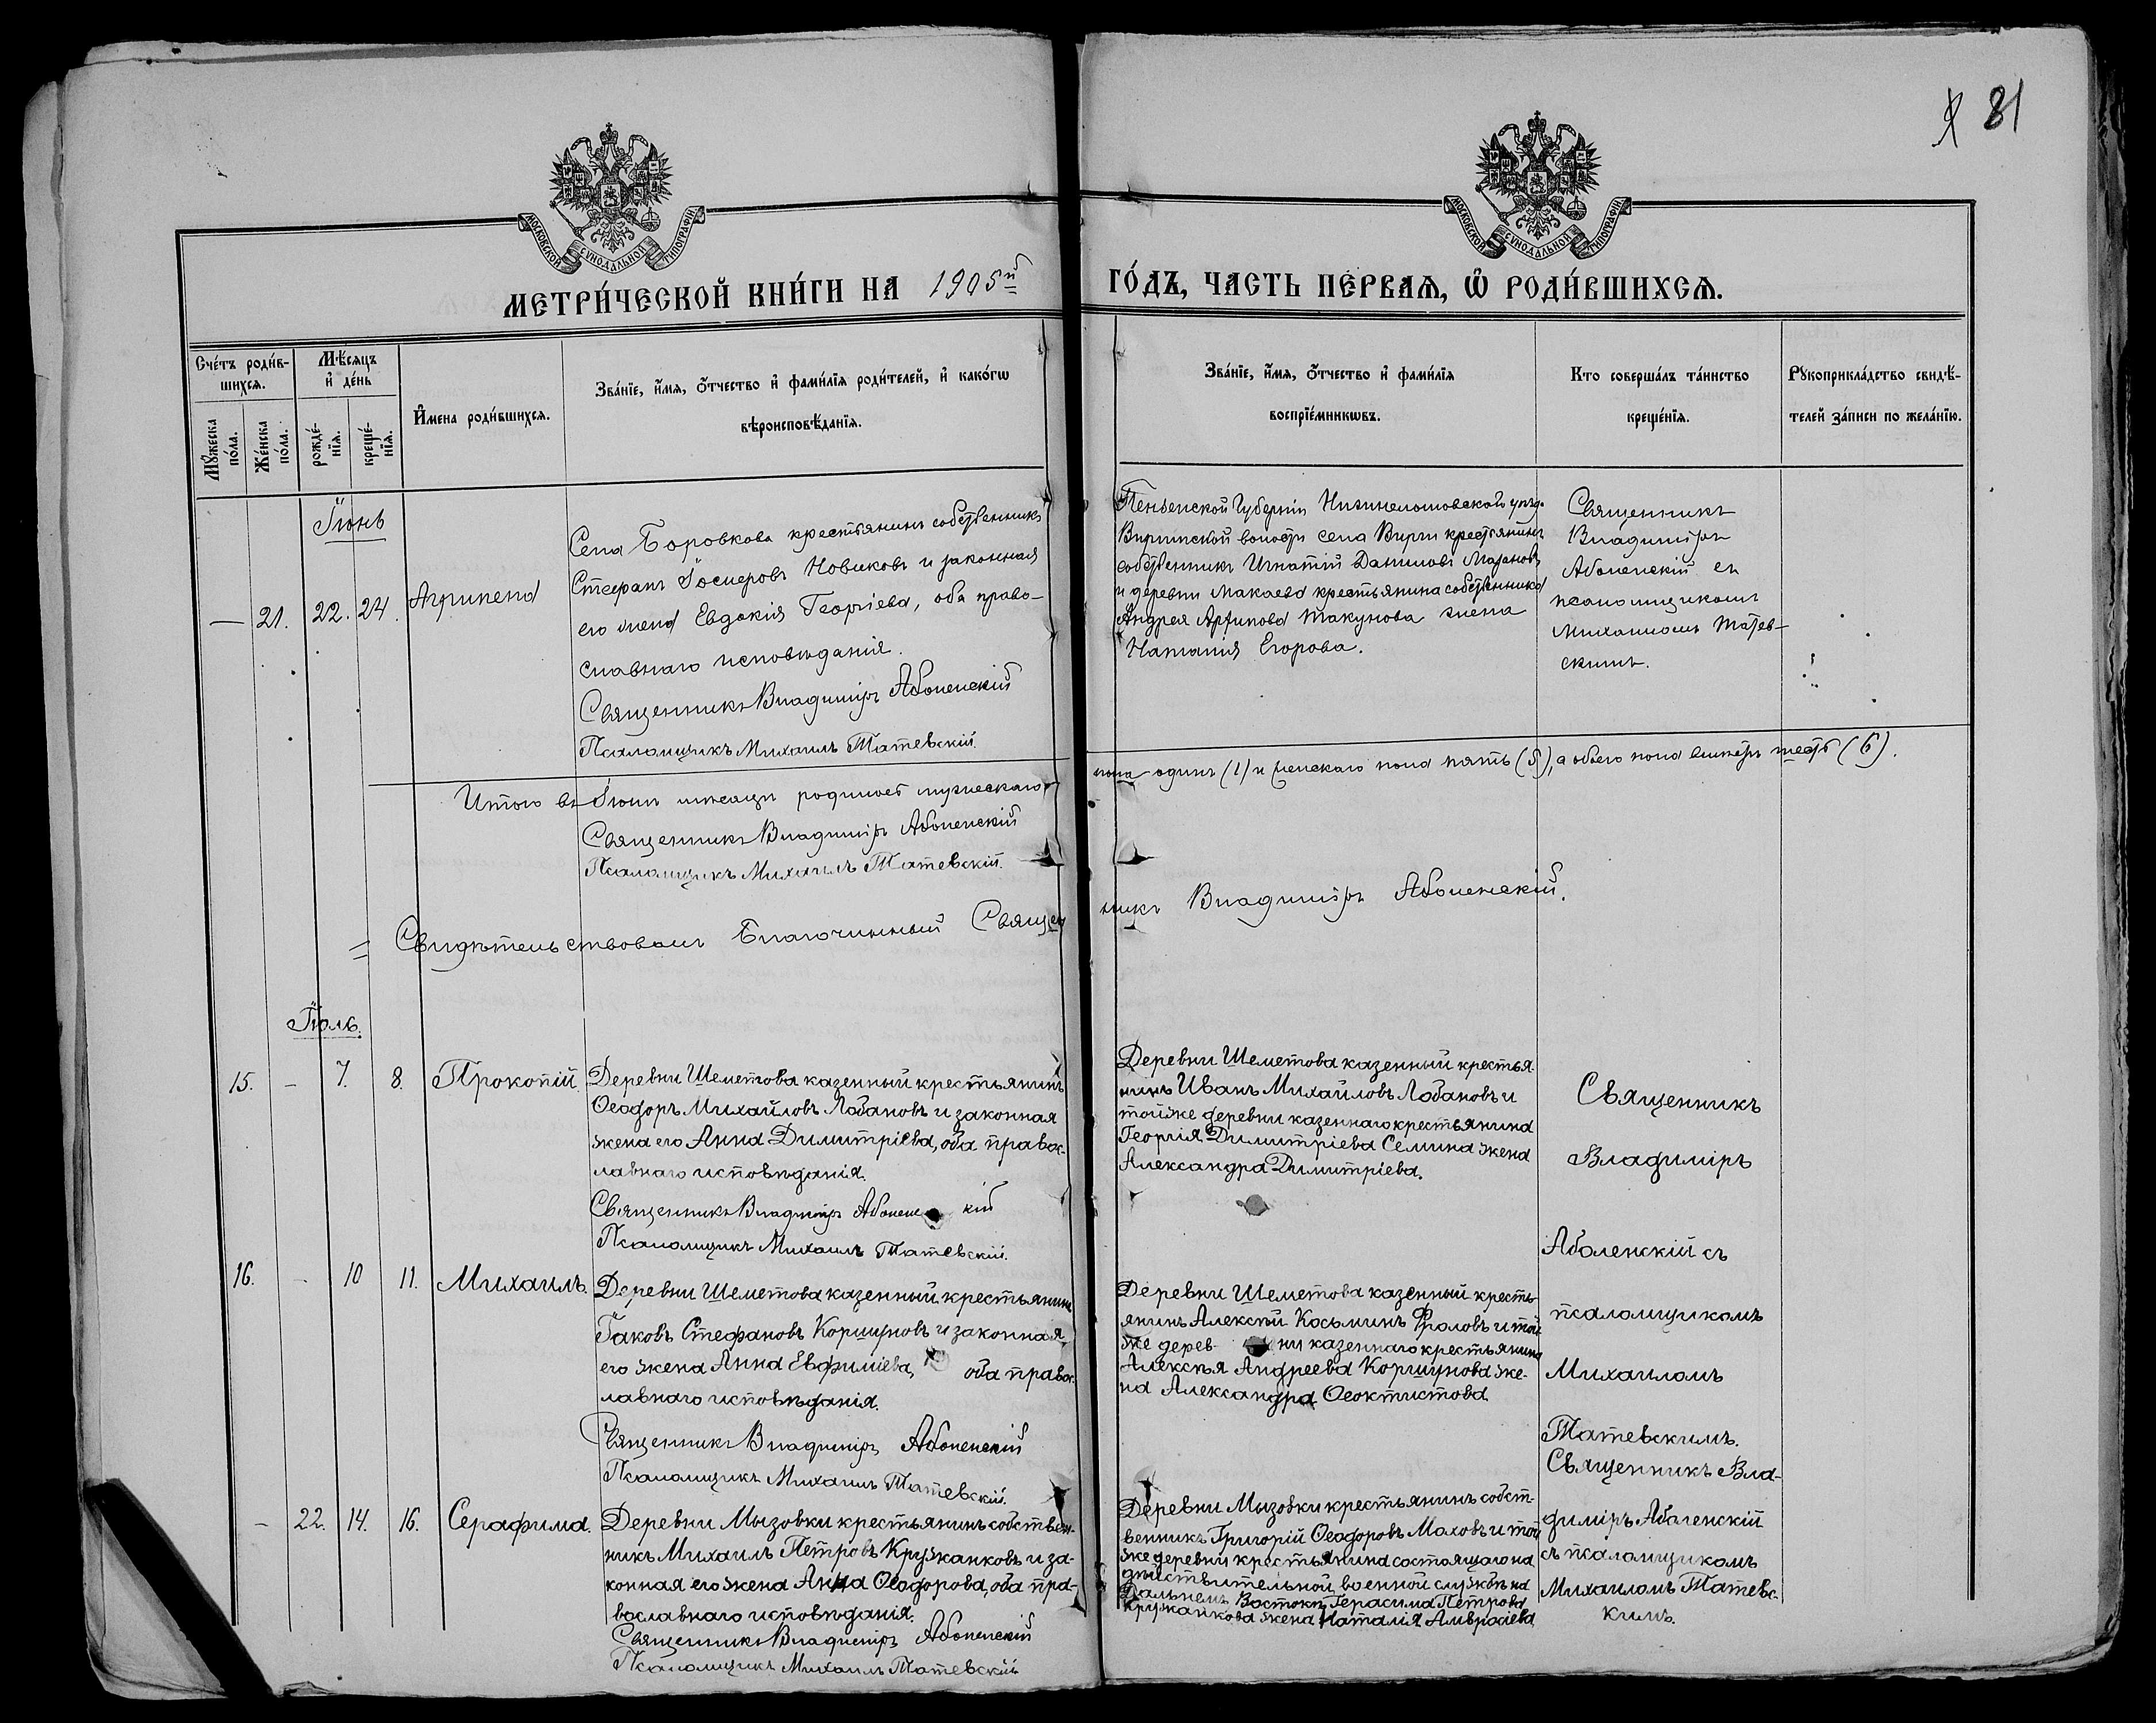 81
МОСКОВСКОЙ СѴНОДАЛЬНОЙ ТИПОГРАФІИ
МОСКОВСКОЙ СѴНОДАЛЬНОЙ ТИПОГРАФІИ
МЕТРИ́ЧЕСКОЙ КНИ́ГИ НА 1905й
ГО́ДЪ, ЧАСТЬ ПЕ́РВАѦ, Ѡ҆ РОДИ́ВШИХСѦ.
Сче́тъ роди́в-
шихсѧ.
Мѣ́сѧцъ
и҆ де́нь
Мꙋ́жеска
по́ла.
Же́нска
по́ла.
рожде́-
нїѧ.
креще́-
нїѧ.
И҆мена роди́вшихсѧ.
Зва́нїе, и҆́мѧ, ѻ҆́тчество и҆ фами́лїѧ роди́телей, и҆ како́гѡ
вѣроисповѣ́данїѧ.
Зва́нїе, и҆́мѧ, ѻ҆́тчество и҆ фами́лїѧ
воспрїе́мникѡвъ.
Кто соверша́лъ та́инство
креще́нїѧ.
Рꙋкоприкла́дство свидѣ́-
телей за́писи по жела́нїю.
Іюнь
— 21. 22. 24. Агрипена
Села Боровкова крестьянинъ собственникъ
Стефанъ Новиковъ и законная
его жена Евдокія Георгіева, оба право-
славнаго исповѣданія.
Священникъ Владиміръ Аболенскій
Псаломщикъ Михаилъ Татевскій.
Пензенской Губерніи Нижнеломовскаго уѣзд.
Виргинской волости села Вирги крестьянинъ
собственникъ Игнатій Даниловъ Мазановъ
и деревни Макаева крестьянина собственника
Андрея Архипова Такунова жена
Наталія Егорова.
Священникъ
Владиміръ
Аболенскій съ
псаломщикомъ
Михаиломъ Татев-
скимъ.
Итого въ Іюнѣ мѣсяцѣ родилось мужескаго
пола одинъ (1) и женскаго пола пять (5), а обоего пола шесть (6).
Священникъ Владиміръ Аболенскій
Псаломщикъ Михаилъ Татевскій.
= Свидѣтельствовалъ Благочинный Священ
никъ Владиміръ Аболенскій.
Іюль.
15. – 7. 8. Прокопій.
Деревни Шеметова казенный крестьянинъ
Ѳеодоръ Михайловъ Лобановъ и законная
жена его Анна Димитріева, оба правос-
лавнаго исповѣданія.
Священникъ Владиміръ Аболенскій
Псаломщикъ Михаилъ Татевскій.
Деревни Шеметова казенный крестья
нинъ Иванъ Михайловъ Лобановъ и
тойже деревни казеннаго крестьянина
Георгія Димитріева Семина жена
Александра Димитріева.
Священникъ
Владиміръ
Аболенскій съ
псаломщикомъ
Михаиломъ
Татевскимъ.
16. – 10 11. Михаилъ.
Деревни Шеметова казенный крестьянинъ
Іаковъ Стефановъ Коршуновъ и законная
его жена Анна Евфиміева, оба правос-
лавнаго исповѣданія.
Священникъ Владиміръ Аболенскій
Псаломщикъ Михаилъ Татевскій.
Деревни Шеметова казенный кресть-
янинъ Алексѣй Косьминъ Фроловъ и той
же дерев- ни казеннаго крестьянина
Алексѣя Андреева Коршунова же-
на Александра Ѳеоктистова
– 22. 14. 16. Серафима.
Деревни Мызовки крестьянинъ собствен-
никъ Михаилъ Петровъ Кружанковъ и за-
конная его жена Анна Ѳеодорова, оба пра-
вославнаго исповѣданія.
Священникъ Владиміръ Аболенскій
Псаломщикъ Михаилъ Татевскій
Деревни Мызовки крестьянинъ собст-
венникъ Григорій Ѳеодоровъ Маховъ и той
же деревни крестьянина состоящаго на
дѣйствительной военной службѣ на
Дальнемъ Востокѣ Герасима Петрова
Кружанкова жена Наталія Амвросіева
Священникъ Вла-
диміръ Абаленскій
съ псаломщикомъ
Михаиломъ Татевс-
кимъ.